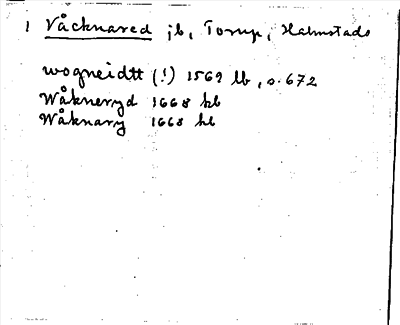 1 Våcknared jb, Torup, Halmstads
wogneidtt (!) 1569 lb, s. 672
Wåkneryd 1668 kb
Wåknary 1668 hb